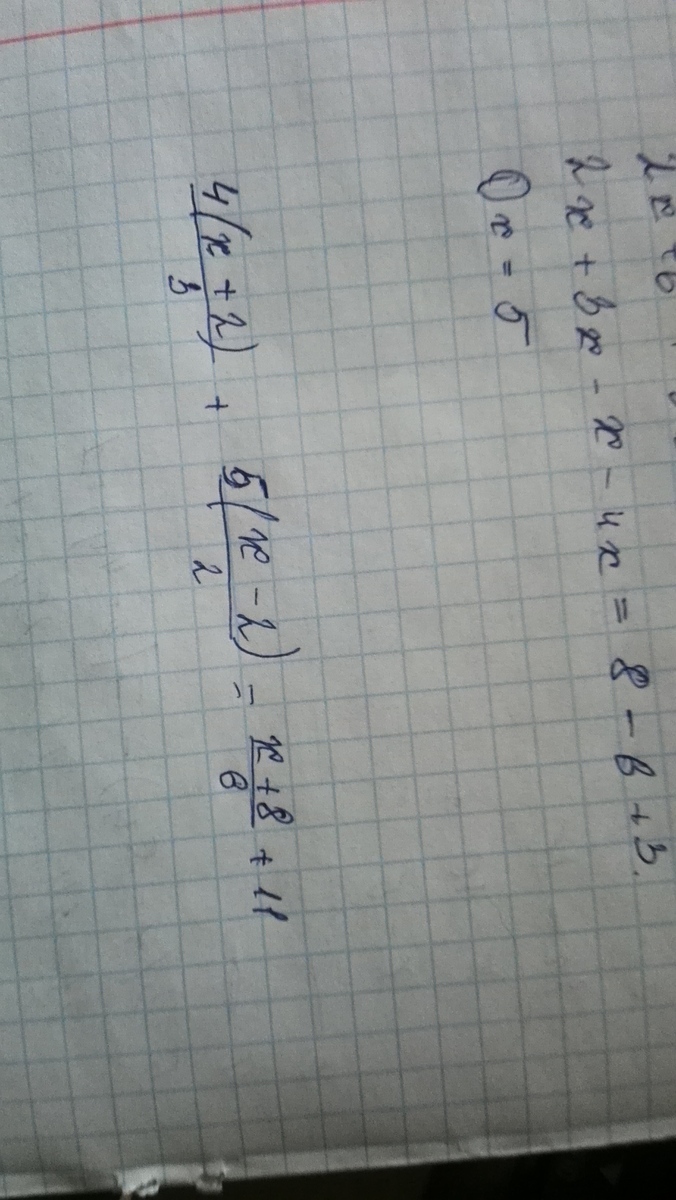 2x+6
2x + 3x - x - 4x = 8 - 6 + 3.
0x = 5
4(x + 2)/3 + 5(x - 2)/2 = x+8/6 + 11